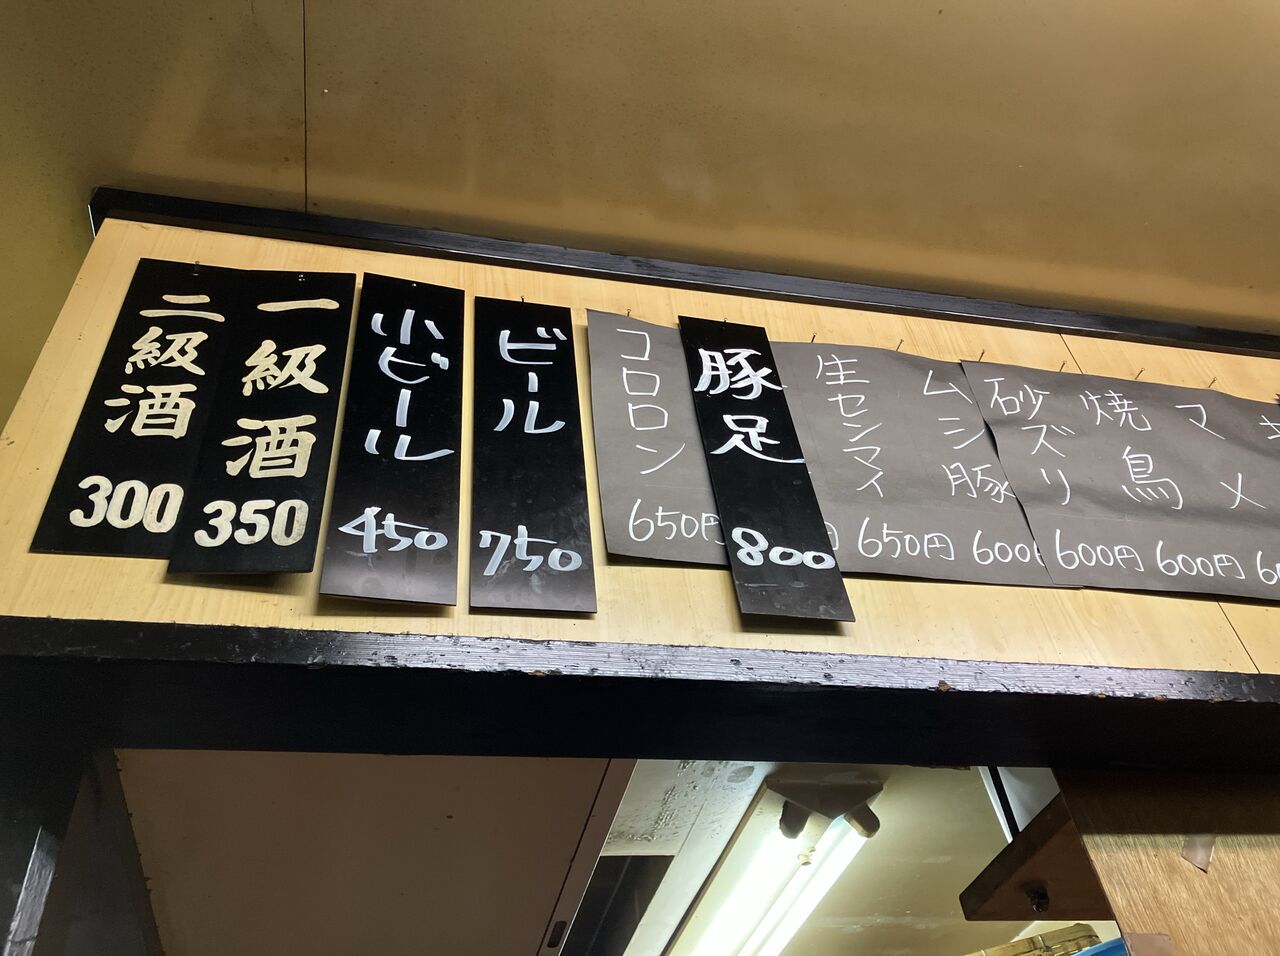 二級酒 300
一級酒 350
小ビール 450
ビール 750
コロロン 650円
豚足 800
生センマイ 650円
ムシ豚 600
砂ズリ 600円
焼鳥 600円
マメ